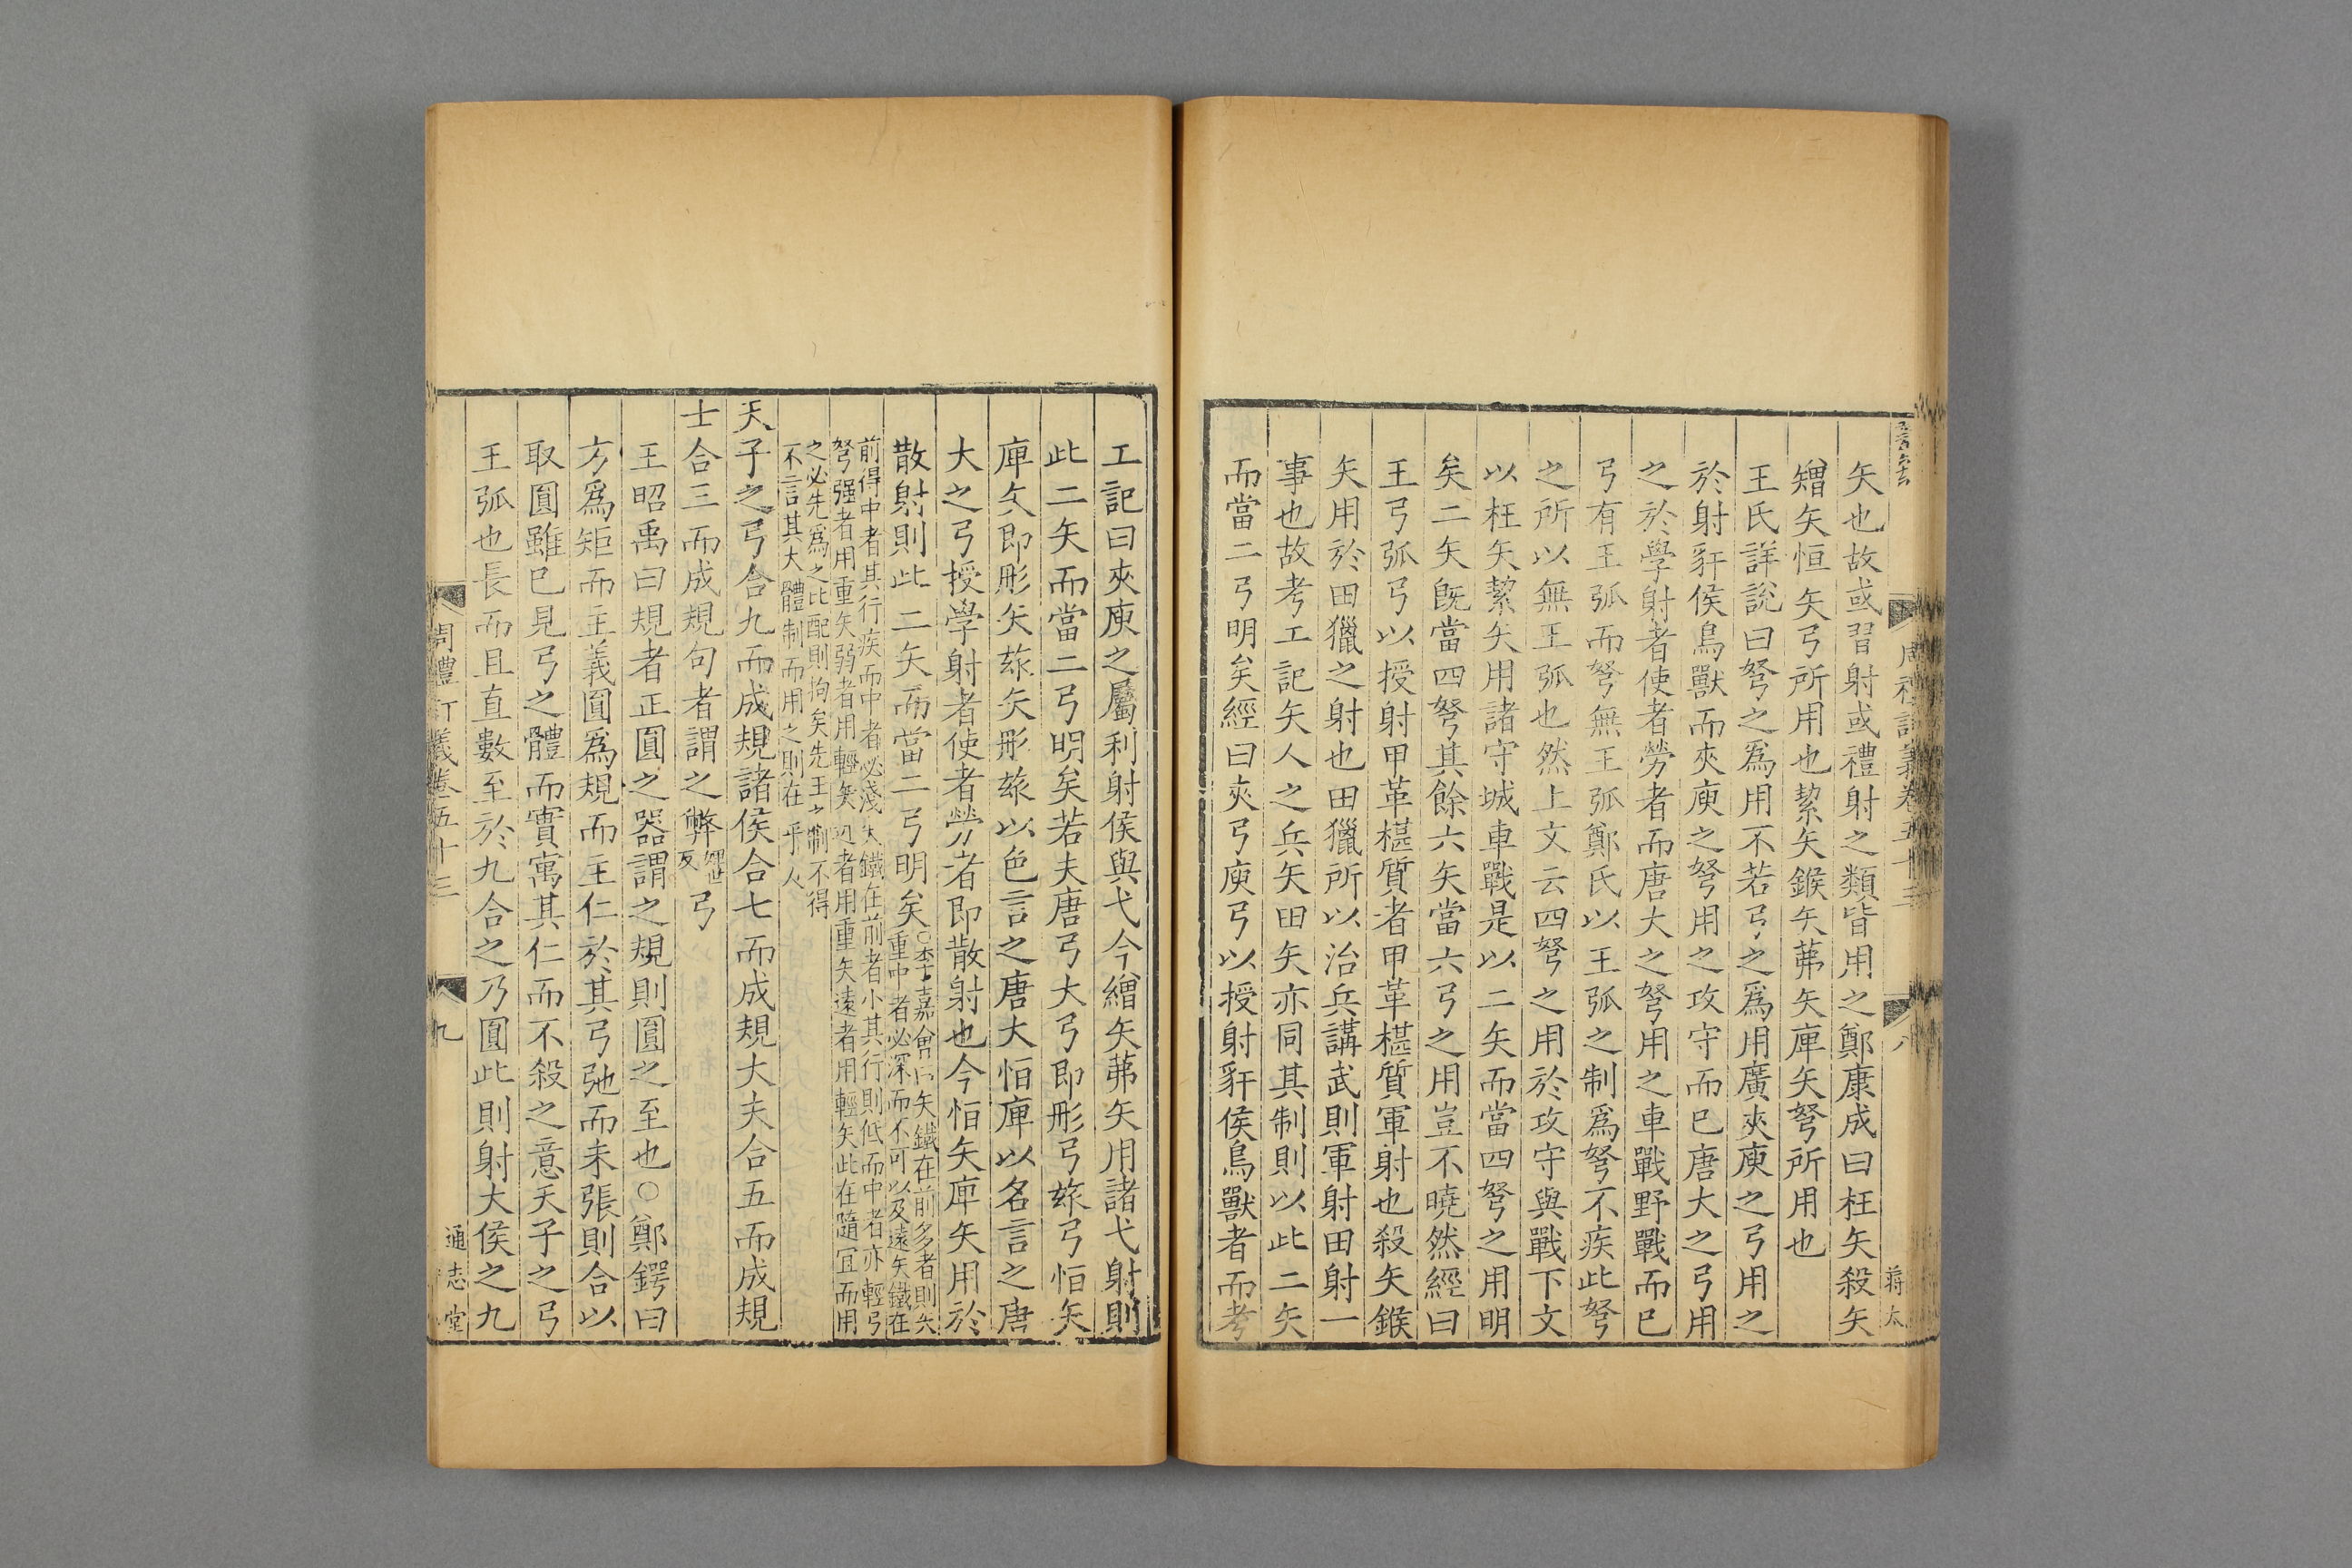 矢也故或習射或禮射之類皆用之鄭康成曰枉矢殺矢
矰矢恒矢弓所用也絜矢鍭矢茀矢庳矢弩所用也
王氏詳說曰弩之爲用不若弓之爲用廣夾庾之弓用之
於射豻侯鳥獸而夾庾之弩用之攻守而已唐大之弓用
之於學射者使者勞者而唐大之弩用之車戰野戰而已
弓有王弧而弩無王弧鄭氏以王弧之制爲弩不疾此弩
之所以無王弧也然上文云四弩之用於攻守與戰下文
以枉矢絜矢用諸守城車戰是以二矢而當四弩之用明
矣二矢旣當四弩其餘六矢當六弓之用豈不曉然經曰
王弓弧弓以授射甲革椹質者甲革椹質軍射也殺矢鍭
矢用於田獵之射也田獵所以治兵講武則軍射田射一
事也故考工記矢人之兵矢田矢亦同其制則以此二矢
而當二弓明矣經曰夾弓庾弓以授射豻侯鳥獸者而考
周禮訂義卷五十三
八
蔣太
工記曰夾庾之屬利射侯與弋今矰矢茀矢用諸弋射則
此二矢而當二弓明矣若夫唐弓大弓即彤弓玈弓恒矢
庳矢即彤矢玈矢彤玈以色言之唐大恒庳以名言之唐
大之弓授學射者使者勞者即散射也今恒矢庳矢用於
散射則此二矢而當二弓明矣
○李嘉會曰矢鐵在前多者則矢
重中者必深而不可以及遠矢鐵在
前得中者其行疾而中者必淺矢鐵在前者小其行則低而中者亦輕弓
弩强者用重矢弱者用輕矢近者用重矢遠者用輕矢此在隨宜而用
之必先爲之比配則拘矣先王之制不得
不言其大體制而用之則在乎人
天子之弓合九而成規諸侯合七而成規大夫合五而成規
士合三而成規句者謂之弊
弓
王昭禹曰規者正圓之器謂之規則圓之至也○鄭鍔曰
方爲矩而主義圓爲規而主仁於其弓弛而未張則合以
取圓雖已見弓之體而實寓其仁而不殺之意天子之弓
王弧也長而且直數至於九合之乃圓此則射大侯之九
周禮訂義卷五十三
九
通志堂